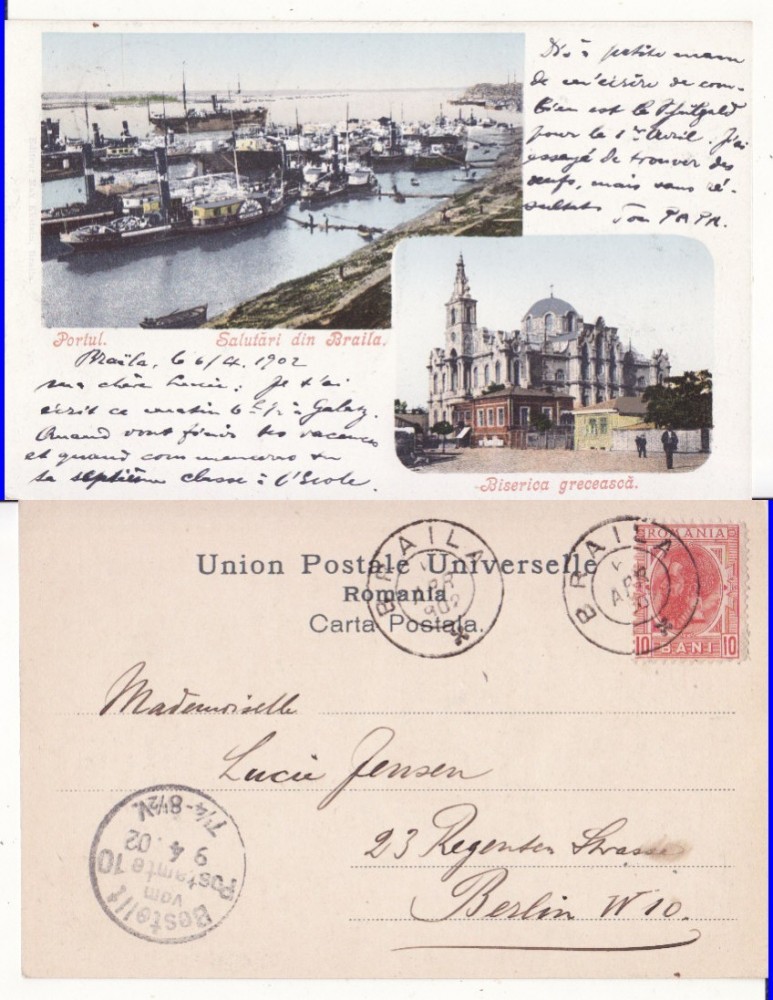 Portul.
Salutări din Braila.
Braïla, le 6/4. 1902
ma chère Lucie; Je t'ai
écrit ce matin de Galaz.
Quand vont finir tes vacances
et quand commenceras tu
ta septième classe à l'Ecole.
Dis à petite mam
de m'écrire de com-
bien est le
pour le 1er Avril. J'ai
essayé de trouver des
œufs, mais sans ré-
sultats Ton PAPA.
Biserica grecească.
Union Postale Universelle
Romania
Carta Postala.
BRAILA
APR
902
BRAILA
APR
ROMANIA
10 BANI 10
Mademoiselle
Lucie Jensen
23 Regenten Strasse
Berlin W 10.
Bestellt
vom
Postamte 10
9 4. 02
7¼-8½V.